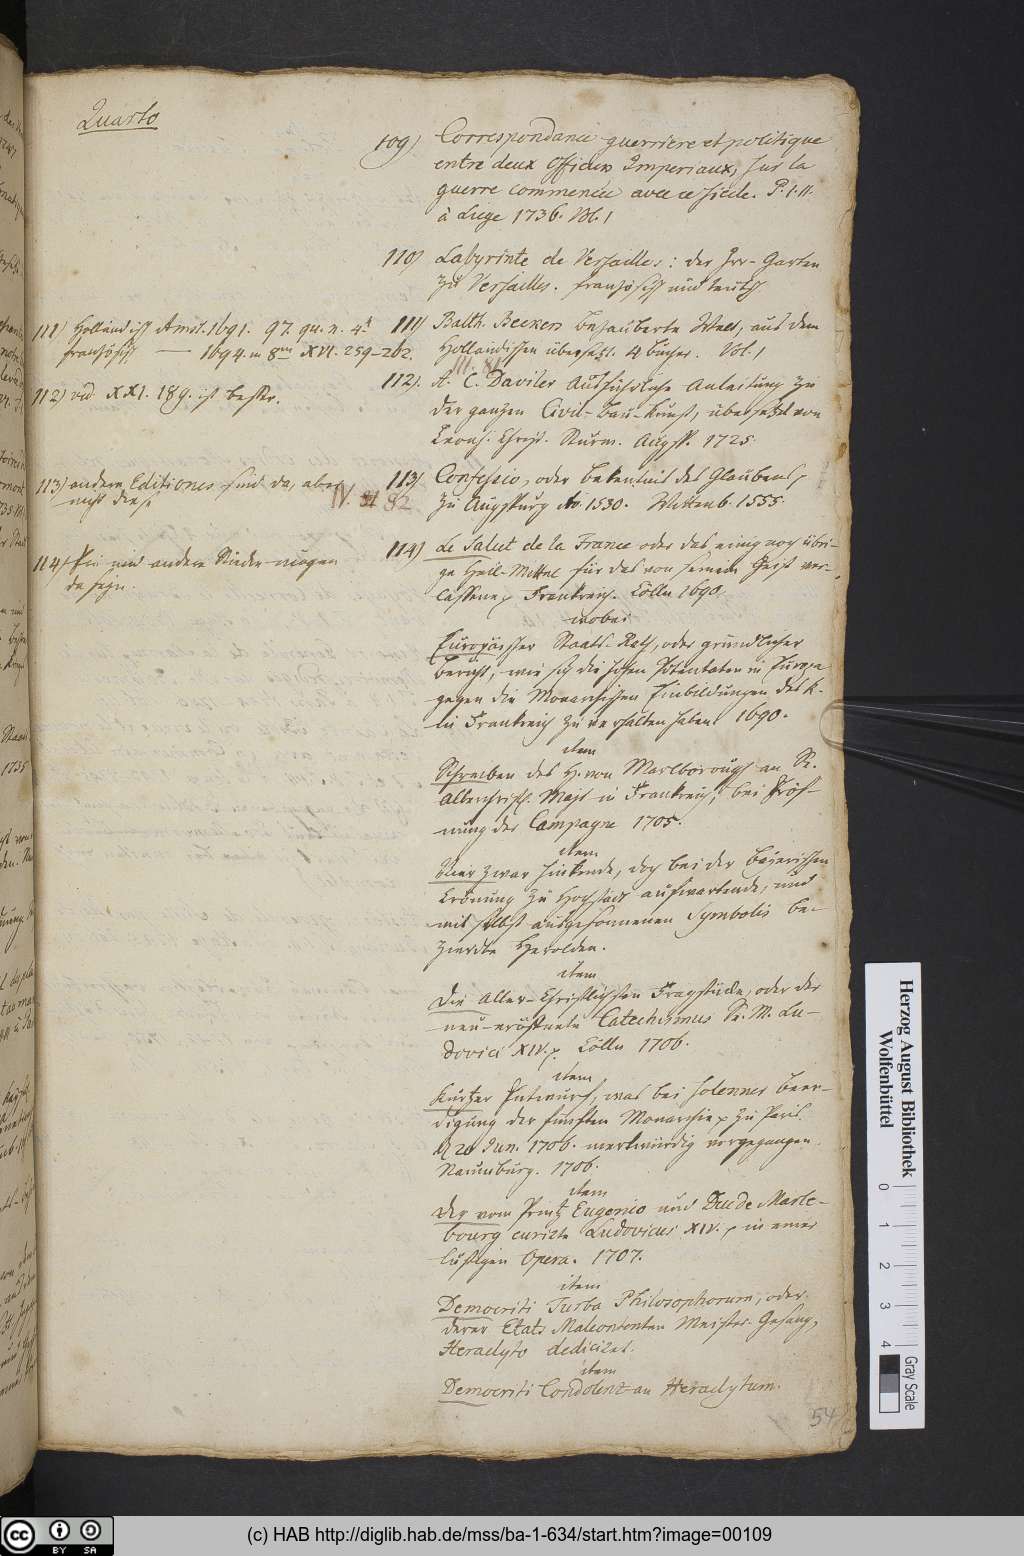 Quarto
109) Correspondance guerriere et politique
entre deux Officiers Imperiaux, sur la
guerre commencée avec ce siecle. P. I. II.
à Liege 1736. Vol. 1
110) Labyrinte de Versailles: der Irr-Garten
zu Versailles. französisch und teutsch
111) Holländisch Amst. 1691. 97. qu. n. 4.
französisch — 1694. in 8. XVI. 259-262.
111) Balth. Beckers bezauberte Welt, aus dem
Holländischen übersetzt. 4 Bücher. Vol. 1
III. 81
112) vid. XXI. 189. ist besser.
112) A. C. Daviler Ausführliche Anleitung zu
der ganzen Civil-Bau-Kunst, übersetzt von
Leonh. Christ. Sturm. Augsp. 1725.
113) andere Editiones sind da, aber
nicht diese
IV. 82
113) Confessio, oder Bekentnis des Glaubens,
zu Augspurg Ao. 1530. Wittenb. 1555
114) Ein und andere Stücke mögen
da seyn.
114) Le Salut de la France oder das einig noch übri-
ge Heil-Mittel für das von seinem Geist ver-
lassene Frankreich. Cölln 1690.
wobei
Europäischer Staats-Rath, oder gründlicher
Bericht, wie sich die hohen Potentaten in Europa
gegen die Monarchischen Einbildungen des K.
in Frankreich zu verhalten haben 1690.
item
Schreiben des H. von Marlborough an Se.
Allerchristl. Majt in Frankreich, bei Eröf-
nung der Campagne 1705.
item
Vier zwar hinkende, doch bei der Bayerischen
Krönung zu Hochstadt aufwartende, und
mit selbst ausgesonnenen Symbolis be-
zierte Herolden.
item
Die Aller-Christlichsten Fragstücke, oder der
neu-eröffnete Catechismus Sr. M. Lu-
dovici XIV. Cölln 1706.
item
Kurtzer Entwurf, was bei solenner Beer-
digung der fünften Monarchie zu Paris
d. 20 Jun. 1706. merkwürdig vorgegangen.
Naumburg. 1706.
item
Der vom Printz Eugenio und Duc de Marle-
bourg curirte Ludovicus XIV. in einer
lustigen Opera. 1707.
item
Democriti Turba Philosophorum, oder
derer Etats Malcontenten Meister-Gesang,
Heraclyto dediciret.
item
Democriti Condolenz an Heraclytum.
54
Herzog August Bibliothek
Wolfenbüttel
0 1 2 3 4
Gray Scale
cc BY SA
(c) HAB http://diglib.hab.de/mss/ba-1-634/start.htm?image=00109